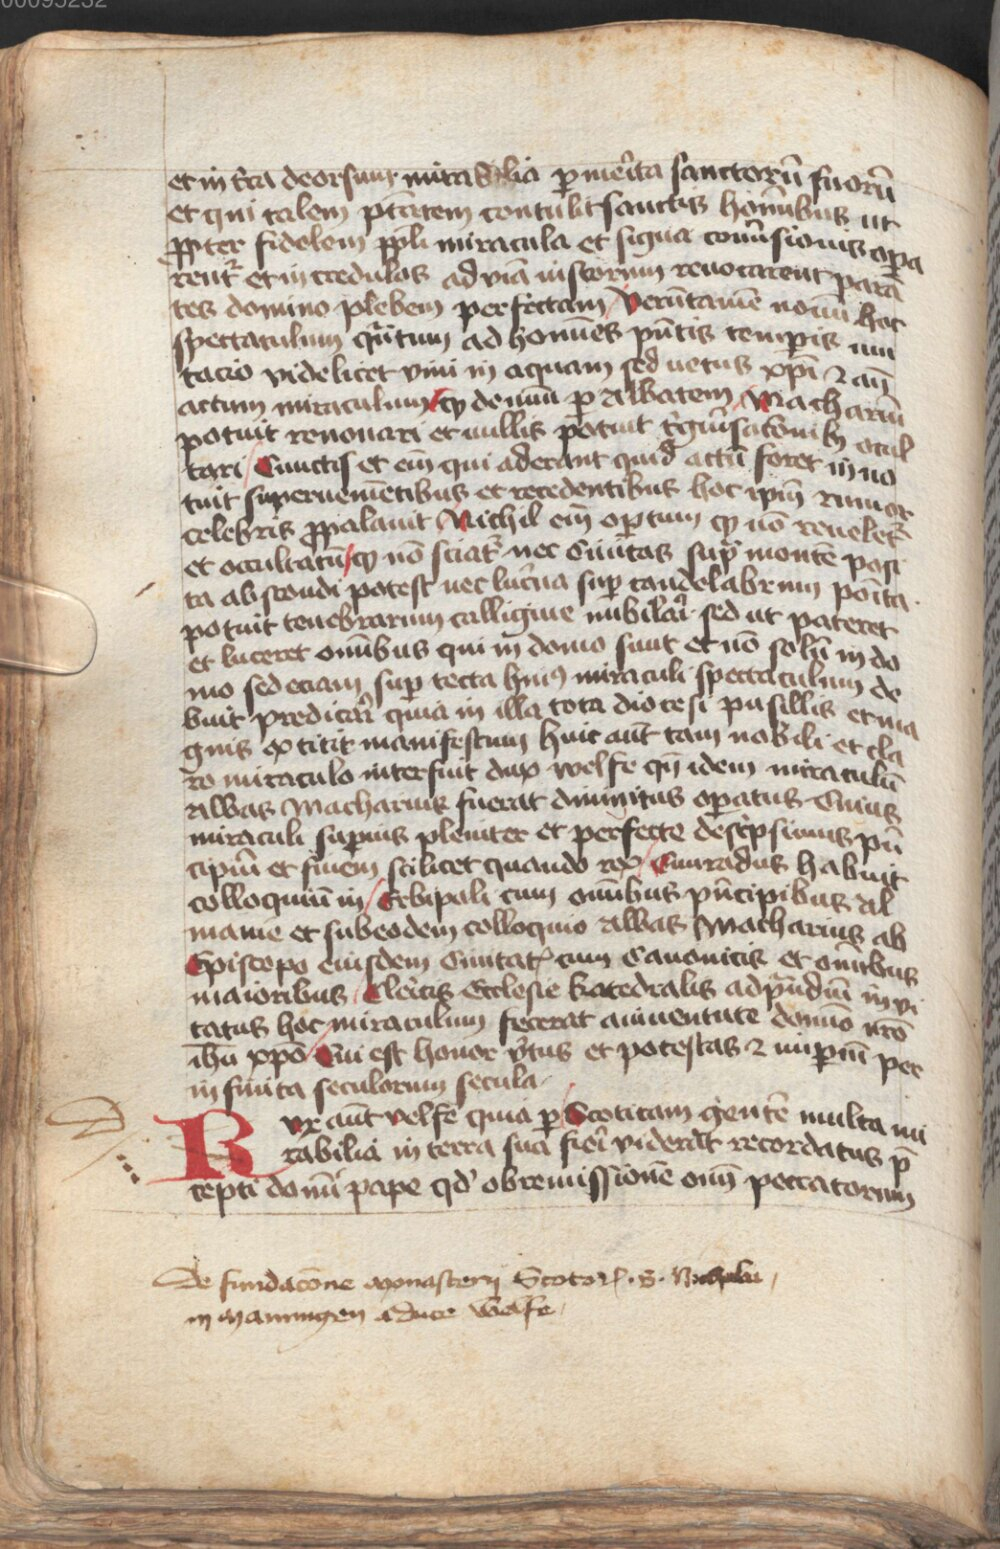 00095232
et in tr̄a deorsum mirabilia ꝑ mērita sanctorū suorū
et qui talem ptātem contulit sanctis hoīnibus ut
ꝓpter fidelem ppl̄i miracula et signa conūsionis opa
rent᷑ et incredulos ad viā iustorum reuocarent parā
tes domino plebem perfectam Verūtamē nouū hoc
spectaculum qūtum ad homīes pn̄tis temꝑis mu
tacio videlicet vini in aquam sed uetus xpī ⁊ an̄
actum miraculum ꝙ demum ꝑ Abbatem Machariū
potuit renouari et nullis potuit occul
tari Cunctis et em̄ qui aderant quid actū foret inno
tuit superueniētibus et recedentibus hoc ip̄m rumor
celebris ꝓpalauit Nichil em̄ oꝑtum ꝙ nō reuelet᷑
et occultatū ꝙ nō sciat᷑ nec Ciuitas supͣ montē posi
ta abscondi potest nec luc̄na suꝑ candelabrum poīta
potuit tenebrarum calligine nubilari sed ut pateret
et luceret omībus qui in domo sunt et nō solū in do
mo sed eciam suꝑ tecta huiꝰ miraculi spectaculum de
buit predicari quia in illa tota diocesi pusillis et ma
gnis extitit manifestum huic aūt tam nobili et cla
ro miraculo interfuit dux welfe qn̄ idem miraculū
Abbas Macharius fuerat diuinitus opatus Cuius
miraculi suꝑius pleniter et perfecte desc̄psimus pn̄
cipiū et finem scilicet quando rex Cunradus habuit
colloquiū in Erbipoli cum omībus pn̄cipibus Al
manie et sub eodem colloquio Abbas Macharius ab
Episcopo eiusdem Ciuitat᷑ cum Canonicis et omībus
maioribus Clericis Ecclesie katedralis ad prādiū inui
tatus hoc miraculum fecerat aiuuentute domīo nr̄o
ih̄u xp̄o Cui est honor v̄tus et potestas ⁊ imꝑiū per
infinita seculorum secula
Dux aūt welfe quia ꝑ Scoticam gentē multa mi
rabilia in terra sua fieri viderat recordatus p̄
cepti domī pape qd̓ ob remissionē om̄ peccatorum
De fundacōne monasterij Scotoꝝ. S. Nicholai
in Mammgen a duce welfe